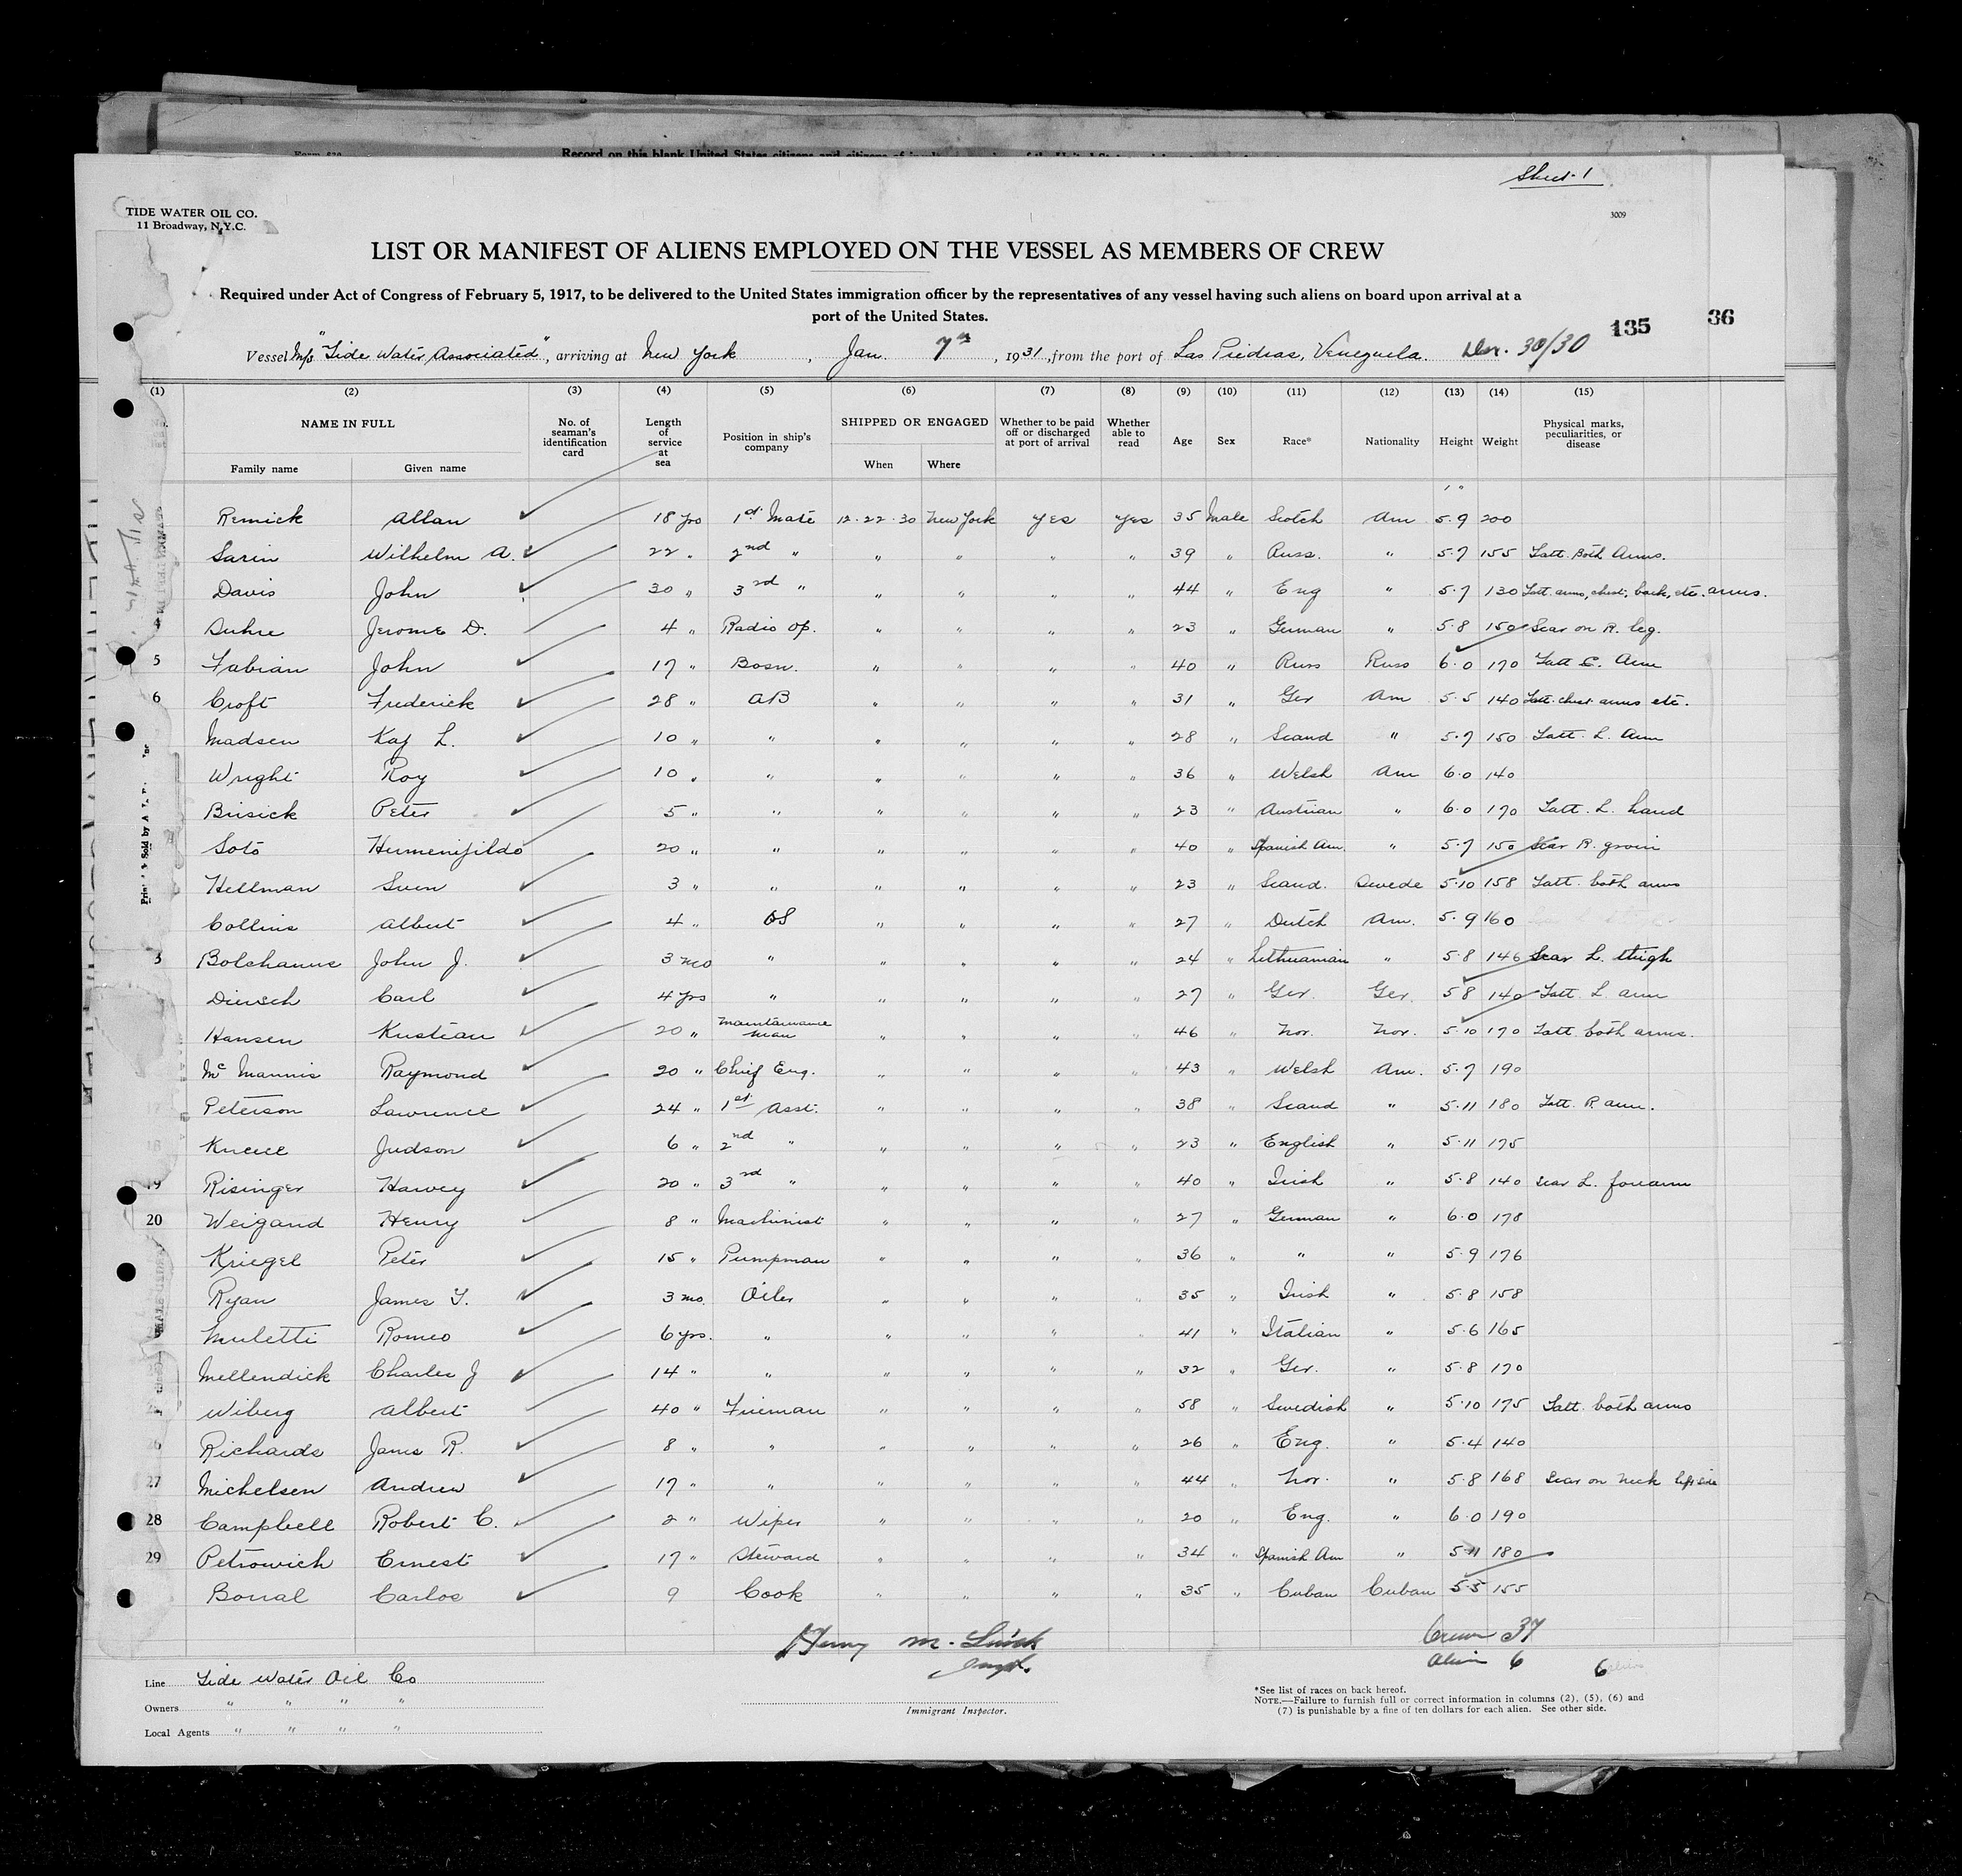 Sheet 1
TIDE WATER OIL CO.
11 Broadway, N.Y.C.
3009
LIST OR MANIFEST OF ALIENS EMPLOYED ON THE VESSEL AS MEMBERS OF CREW
Required under Act of Congress of February 5, 1917, to be delivered to the United States immigration officer by the representatives of any vessel having such aliens on board upon arrival at a
port of the United States.
135 36
Vessel M/S "Tide Water Associated", arriving at New York, Jan. 7th, 1931, from the port of Las Piedras, Venezuela. 30/30
(1) (2) (3) (4) (5) (6) (7) (8) (9) (10) (11) (12) (13) (14) (15)
NAME IN FULL No. of seaman's identification card Length of service at sea Position in ship's company SHIPPED OR ENGAGED Whether to be paid off or discharged at port of arrival Whether able to read Age Sex Race* Nationality Height Weight Physical marks, peculiarities, or disease
Family name Given name When Where
Remick Allan 18 yrs 1st Mate 12-22-30 New York Yes Yes 35 Male Scotch Am 5.9 200
Sarin Wilhelm A. 22 " 2nd " " " " " 39 " Russ. " 5.7 155 Tatt. Both Arms.
Davis John 30 " 3rd " " " " " 44 " Eng " 5.7 130 Tatt. arms, chest, back, etc. arms.
Jerome D. 4 " Radio Op. " " " " 23 " German " 5.8 150 Scar on R. leg.
5 Fabian John 17 " Bosn. " " " " 40 " Russ Russ 6.0 170 Tatt Arm
6 Croft Frederick 28 " AB " " " " 31 " Ger Am 5.5 140 Tatt. chest arms etc.
Madsen Kaj L. 10 " " " " " " 28 " Scand " 5.7 150 Tatt. L. Arm
Wright Roy 10 " " " " " " 36 " Welsh Am 6.0 140
Brisick Peter 5 " " " " " " 23 " Austrian " 6.0 170 Tatt. L. hand
Soto Hermenijildo 20 " " " " " " 40 " Spanish Am. " 5.7 150 Scar R. groin
Hellman Sven 3 " " " " " " 23 " Scand. Swede 5.10 158 Tatt. both arms
Collins Albert 4 " OS " " " " 27 " Dutch Am. 5.9 160
3 Bolshanus John J. 3 mo " " " " " 24 " Lithuanian " 5.8 146 Scar L. thigh
Diersch Carl 4 yrs " " " " " 27 " Ger. Ger. 5 8 140 Tatt. L. arm
Hansen Kristian 20 " Maintainance Man " " " " 46 " Nor. Nor. 5.10 170 Tatt. both arms.
McMannis Raymond 20 " Chief Eng. " " " " 43 " Welsh Am. 5.7 190
17 Peterson Lawrence 24 " 1st Asst. " " " " 38 " Scand " 5.11 180 Tatt. R. arm.
18 Judson 6 " 2nd " " " " " 23 " English " 5.11 175
19 Risinger Harvey 20 " 3rd " " " " " 40 " Irish " 5.8 140 Scar L. forearm
20 Weigand Henry 8 " Machinist " " " " 27 " German " 6.0 178
Kriegel Peter 15 " Pumpman " " " " 36 " " " 5.9 176
Ryan James T. 3 mo. Oiler " " " " 35 " Irish " 5.8 158
Muletti Romeo 6 yrs. " " " " " 41 " Italian " 5.6 165
Mellendick Charles J 14 " " " " " " 32 " Ger. " 5.8 170
Wiberg Albert 40 " Fireman " " " " 58 " Swedish " 5.10 175 Tatt. both arms
26 Richards James R. 8 " " " " " " 26 " Eng. " 5.4 140
27 Michelsen Andrew 17 " " " " " " 44 " Nor. " 5.8 168 Scar on neck left side
28 Campbell Robert C. 2 " Wiper " " " " 20 " Eng. " 6.0 190
29 Petrowich Ernest 17 " Steward " " " " 34 " Spanish Am " 5.11 180
Borral Carlos 9 Cook " " " " 35 " Cuban Cuban 5.5 155
Henry M. Insp.
Crew 37
Alien 6 6
Line Tide Water Oil Co
Owners " " " "
Local Agents " " " "
Immigrant Inspector.
*See list of races on back hereof.
NOTE.—Failure to furnish full or correct information in columns (2), (5), (6) and
(7) is punishable by a fine of ten dollars for each alien. See other side.